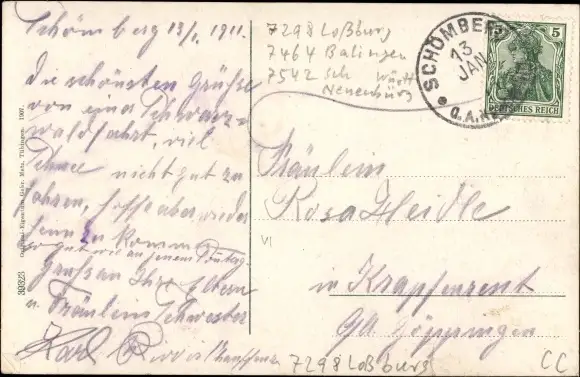 Schömberg 13/1. 1911.
Die schönsten Grüße
von einer Schwarz-
waldfahrt, viel
Schnee nicht gut zu
fahren, hoffe aber wieder
heim zu kommen
so gut wie an jenem Sonntag.
Grüße an Ihre Eltern
u. Fräulein Schwester
Karl
7298 Loßburg
7464 Balingen
7542 Sch Württ
Neuenbürg
SCHÖMBERG
13
JAN
O.A.
5 5
DEUTSCHES REICH
Fräulein
Rosa Heidle
in
OA Göppingen
VI
7298 Loßburg
CC
39323
Gebr. Metz, Tübingen. 1907.